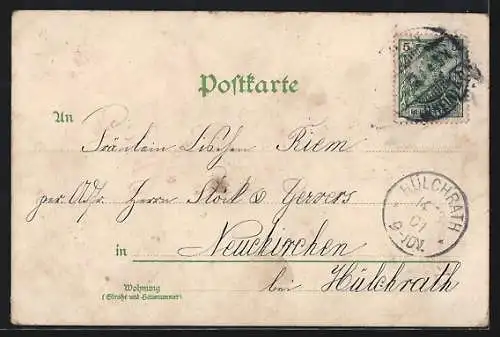 Postkarte
5
An
Fräulein Lischen Riem
per. Adr. Herrn Stock & Gervers
in Neuckirchen
bei Hülchrath
HÜLCHRATH
01
9-10V.
Wohnung
(Straße und Hausnummer)